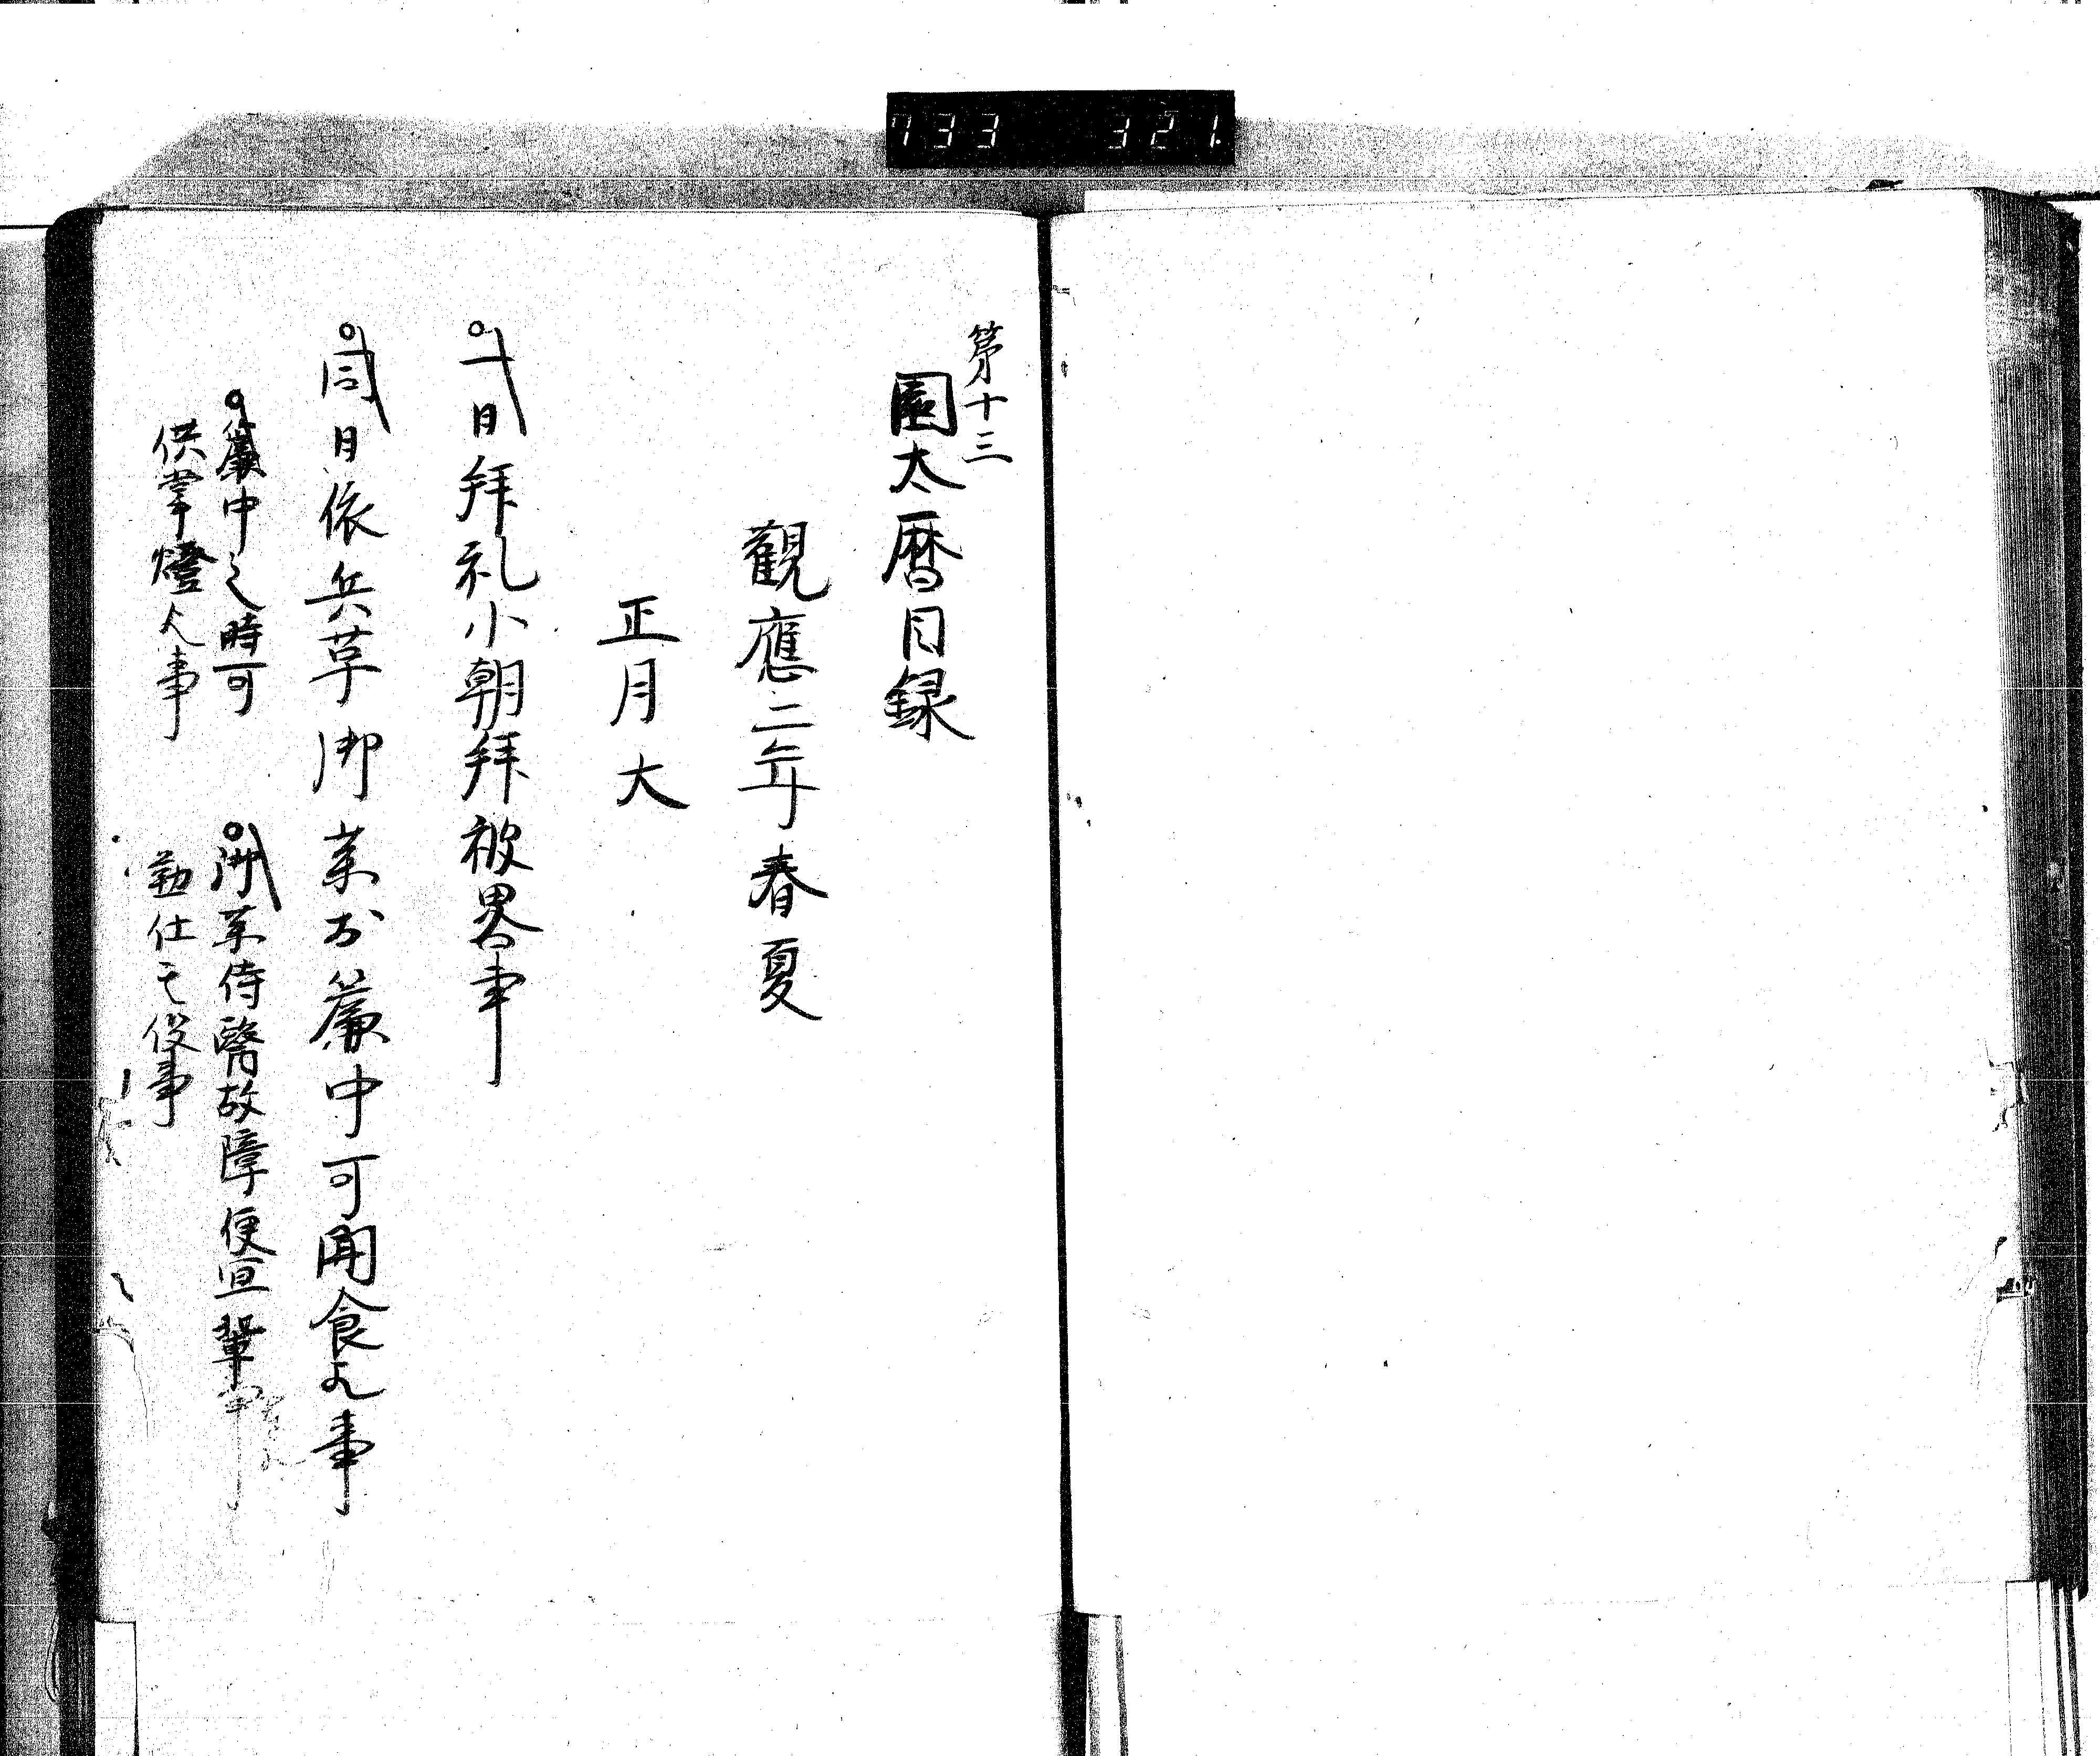 733 321
第十三
園太暦目録
觀應二年春夏
正月大
一日拜礼小朝拜被畧事
同日依兵革御薬於簾中可聞食哉事
簾中之時可
供掌燈哉事
御薬侍醫故障便宜輩
勤仕其役事